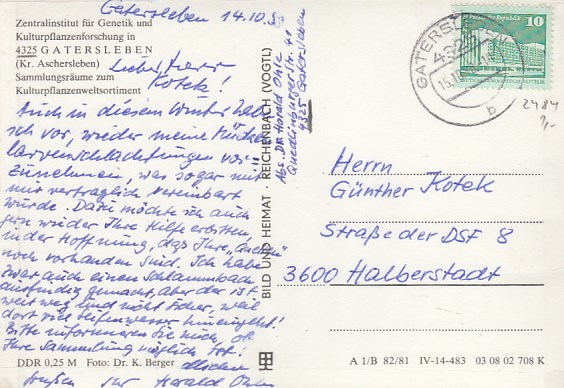 Gatersleben 14.10.
Zentralinstitut für Genetik und
Kulturpflanzenforschung in
4325 GATERSLEBEN
(Kr. Aschersleben)
Sammlungsräume zum
Kulturpflanzenweltsortiment
Lieber Herr
Kotek!
Auch in diesem Winter habe
ich vor, wieder meine Mücken-
larvenschlachtungen vor-
zunehmen, was sogar mit
mir vertraglich vereinbart
wurde. Dazu möchte ich auch
gern wieder Ihre Hilfe erbitten,
in der Hoffnung, daß Ihre "Quellen"
noch vorhanden sind. Ich habe
zwar auch einen Schlammbach
ausfindig gemacht, aber der ist
weit weg und nicht sicher, weil
dort viel Seifenwasser
Bitte informieren Sie mich, ob
Ihre Sammlung möglich ist!
Grüßen Ihr Harald Ohle
DDR 0,25 M Foto: Dr. K. Berger
BILD UND HEIMAT REICHENBACH (VOGTL)
Abs. DR. Harald Ohle
Quedlinburgerstr. 41
4325 Gatersleben
GATERSLEBEN
b
10
2484
?,-
Herrn
Günther Kotek
Straße der DSF 8
3600 Halberstadt
A 1/B 82/81 IV-14-483 03 08 02 708 K